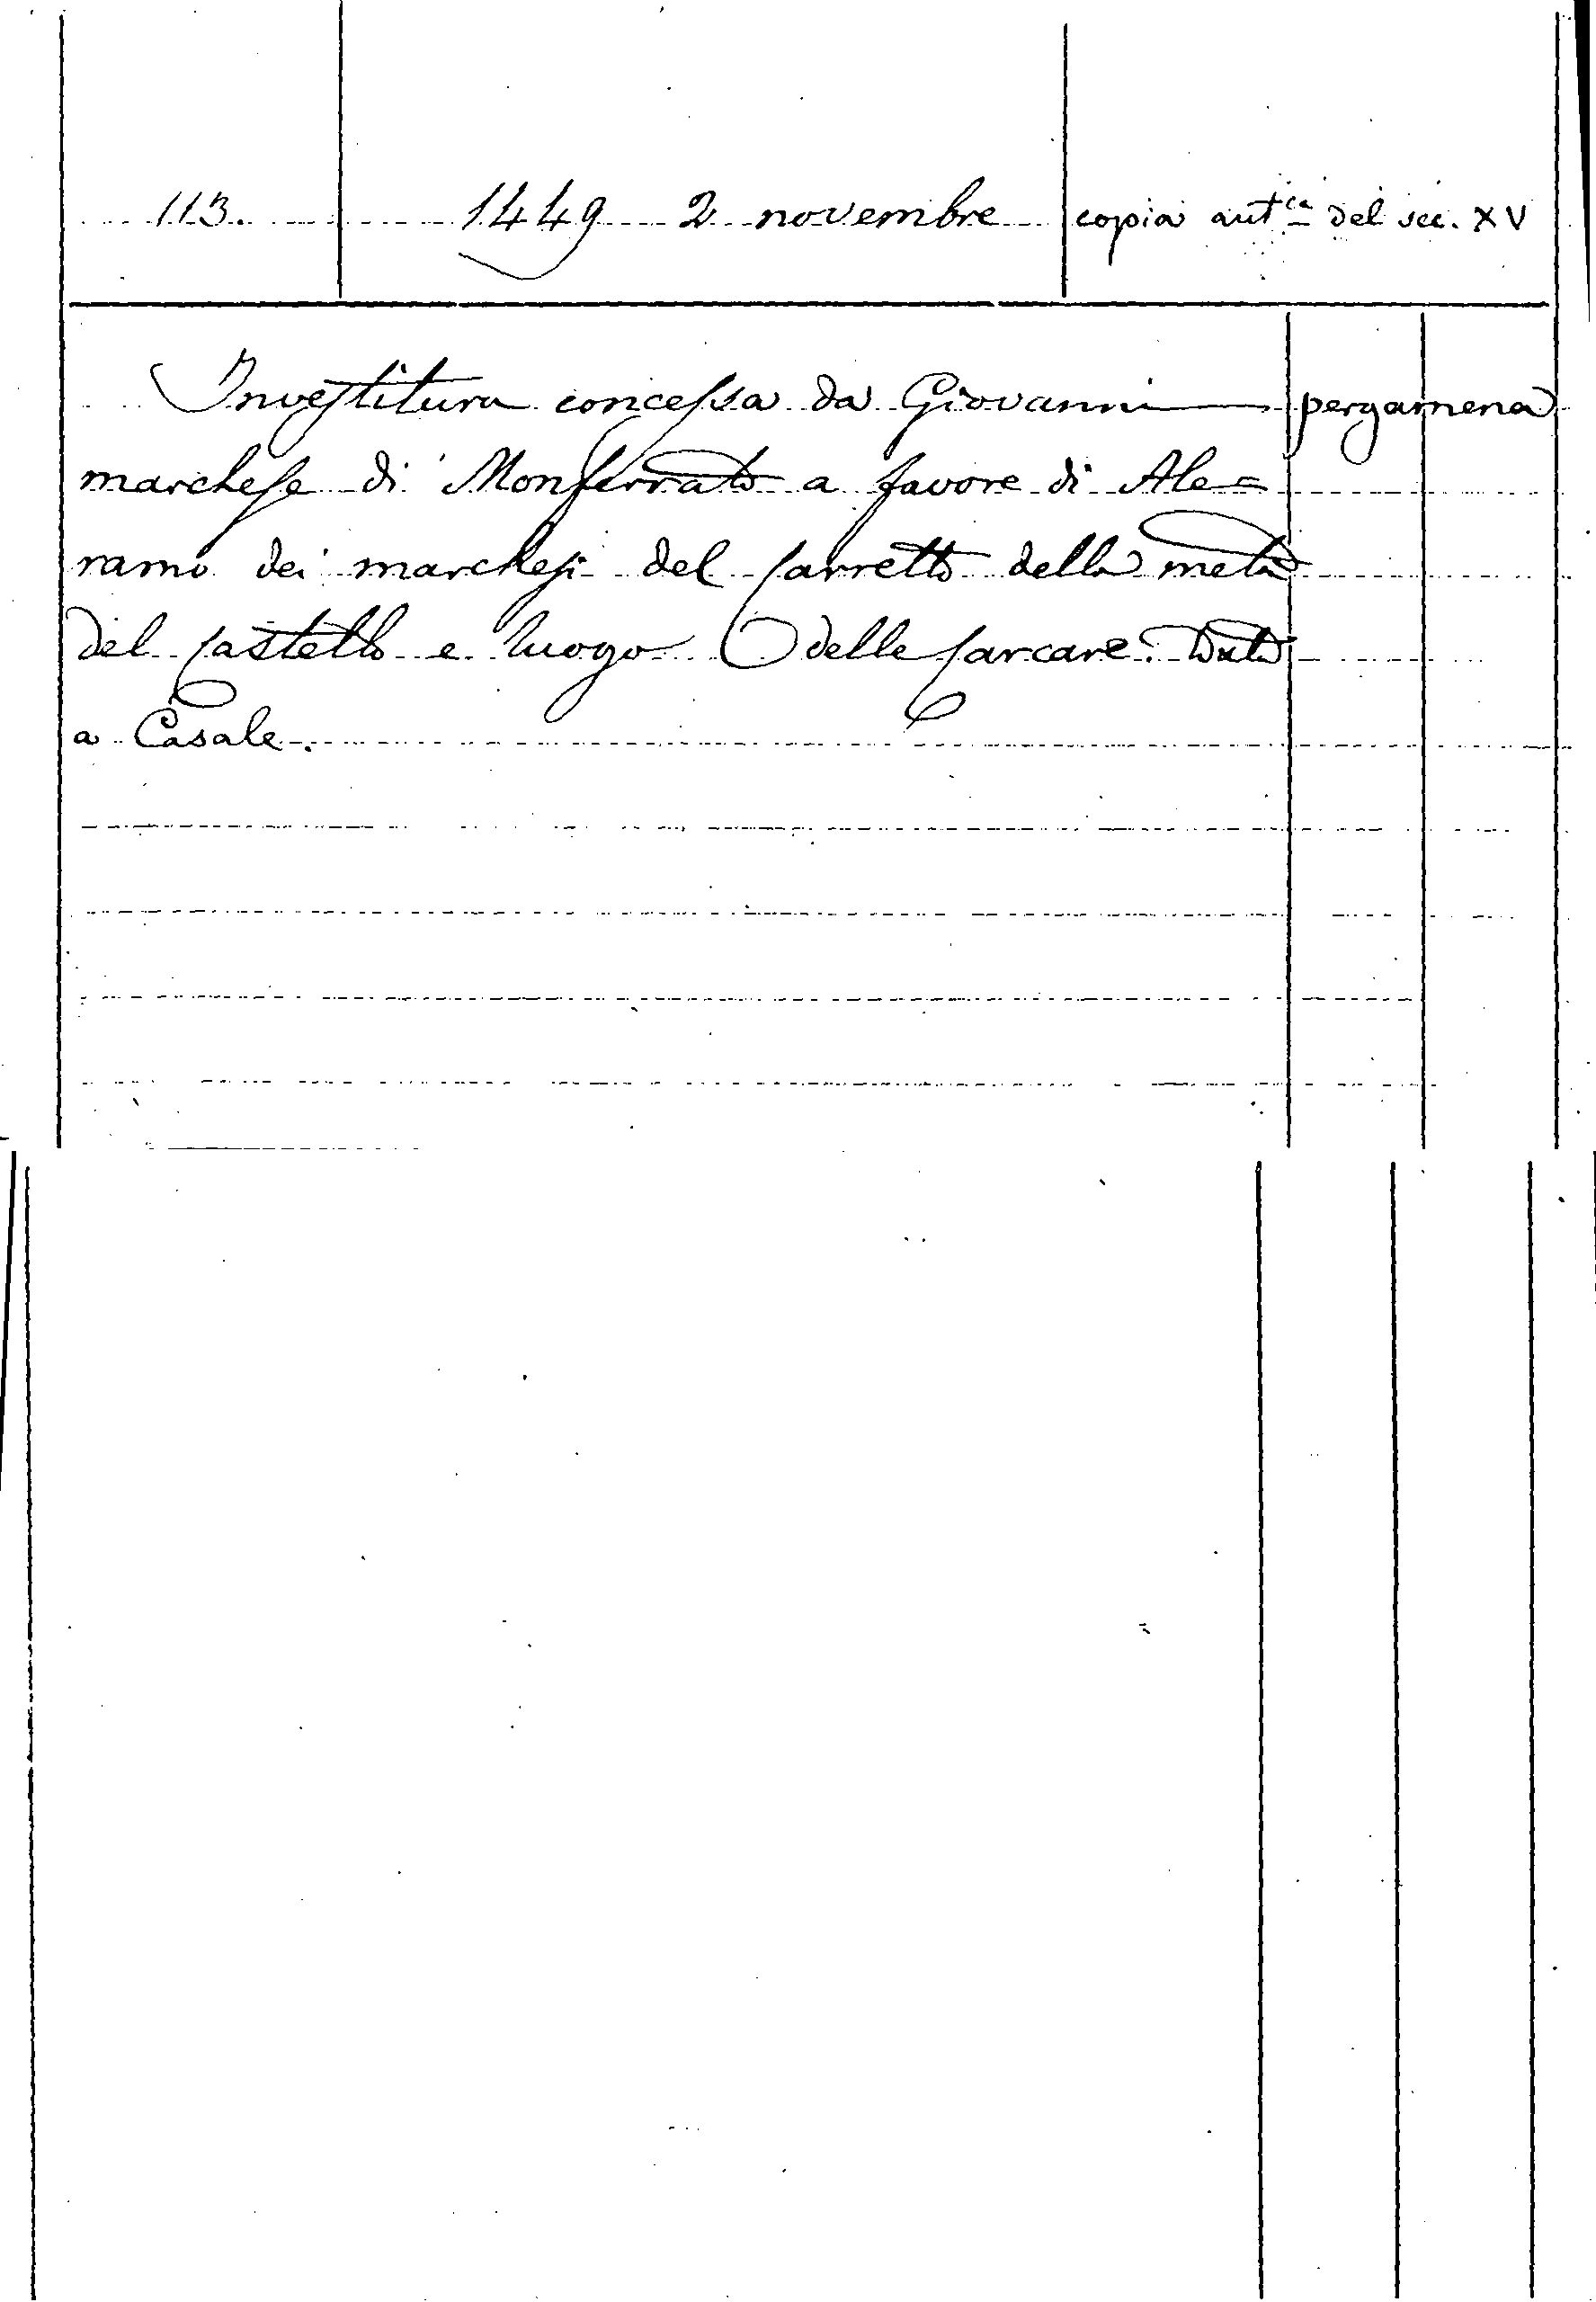 113. 1449 2 novembre copia aut.ca del sec. XV
Investitura concessa da Giovanni pergamena
marchese di Monferrato a favore di Ale=
ramo dei marchesi del Carretto della metà
del Castello e luogo delle Carcare. Data
a Casale.